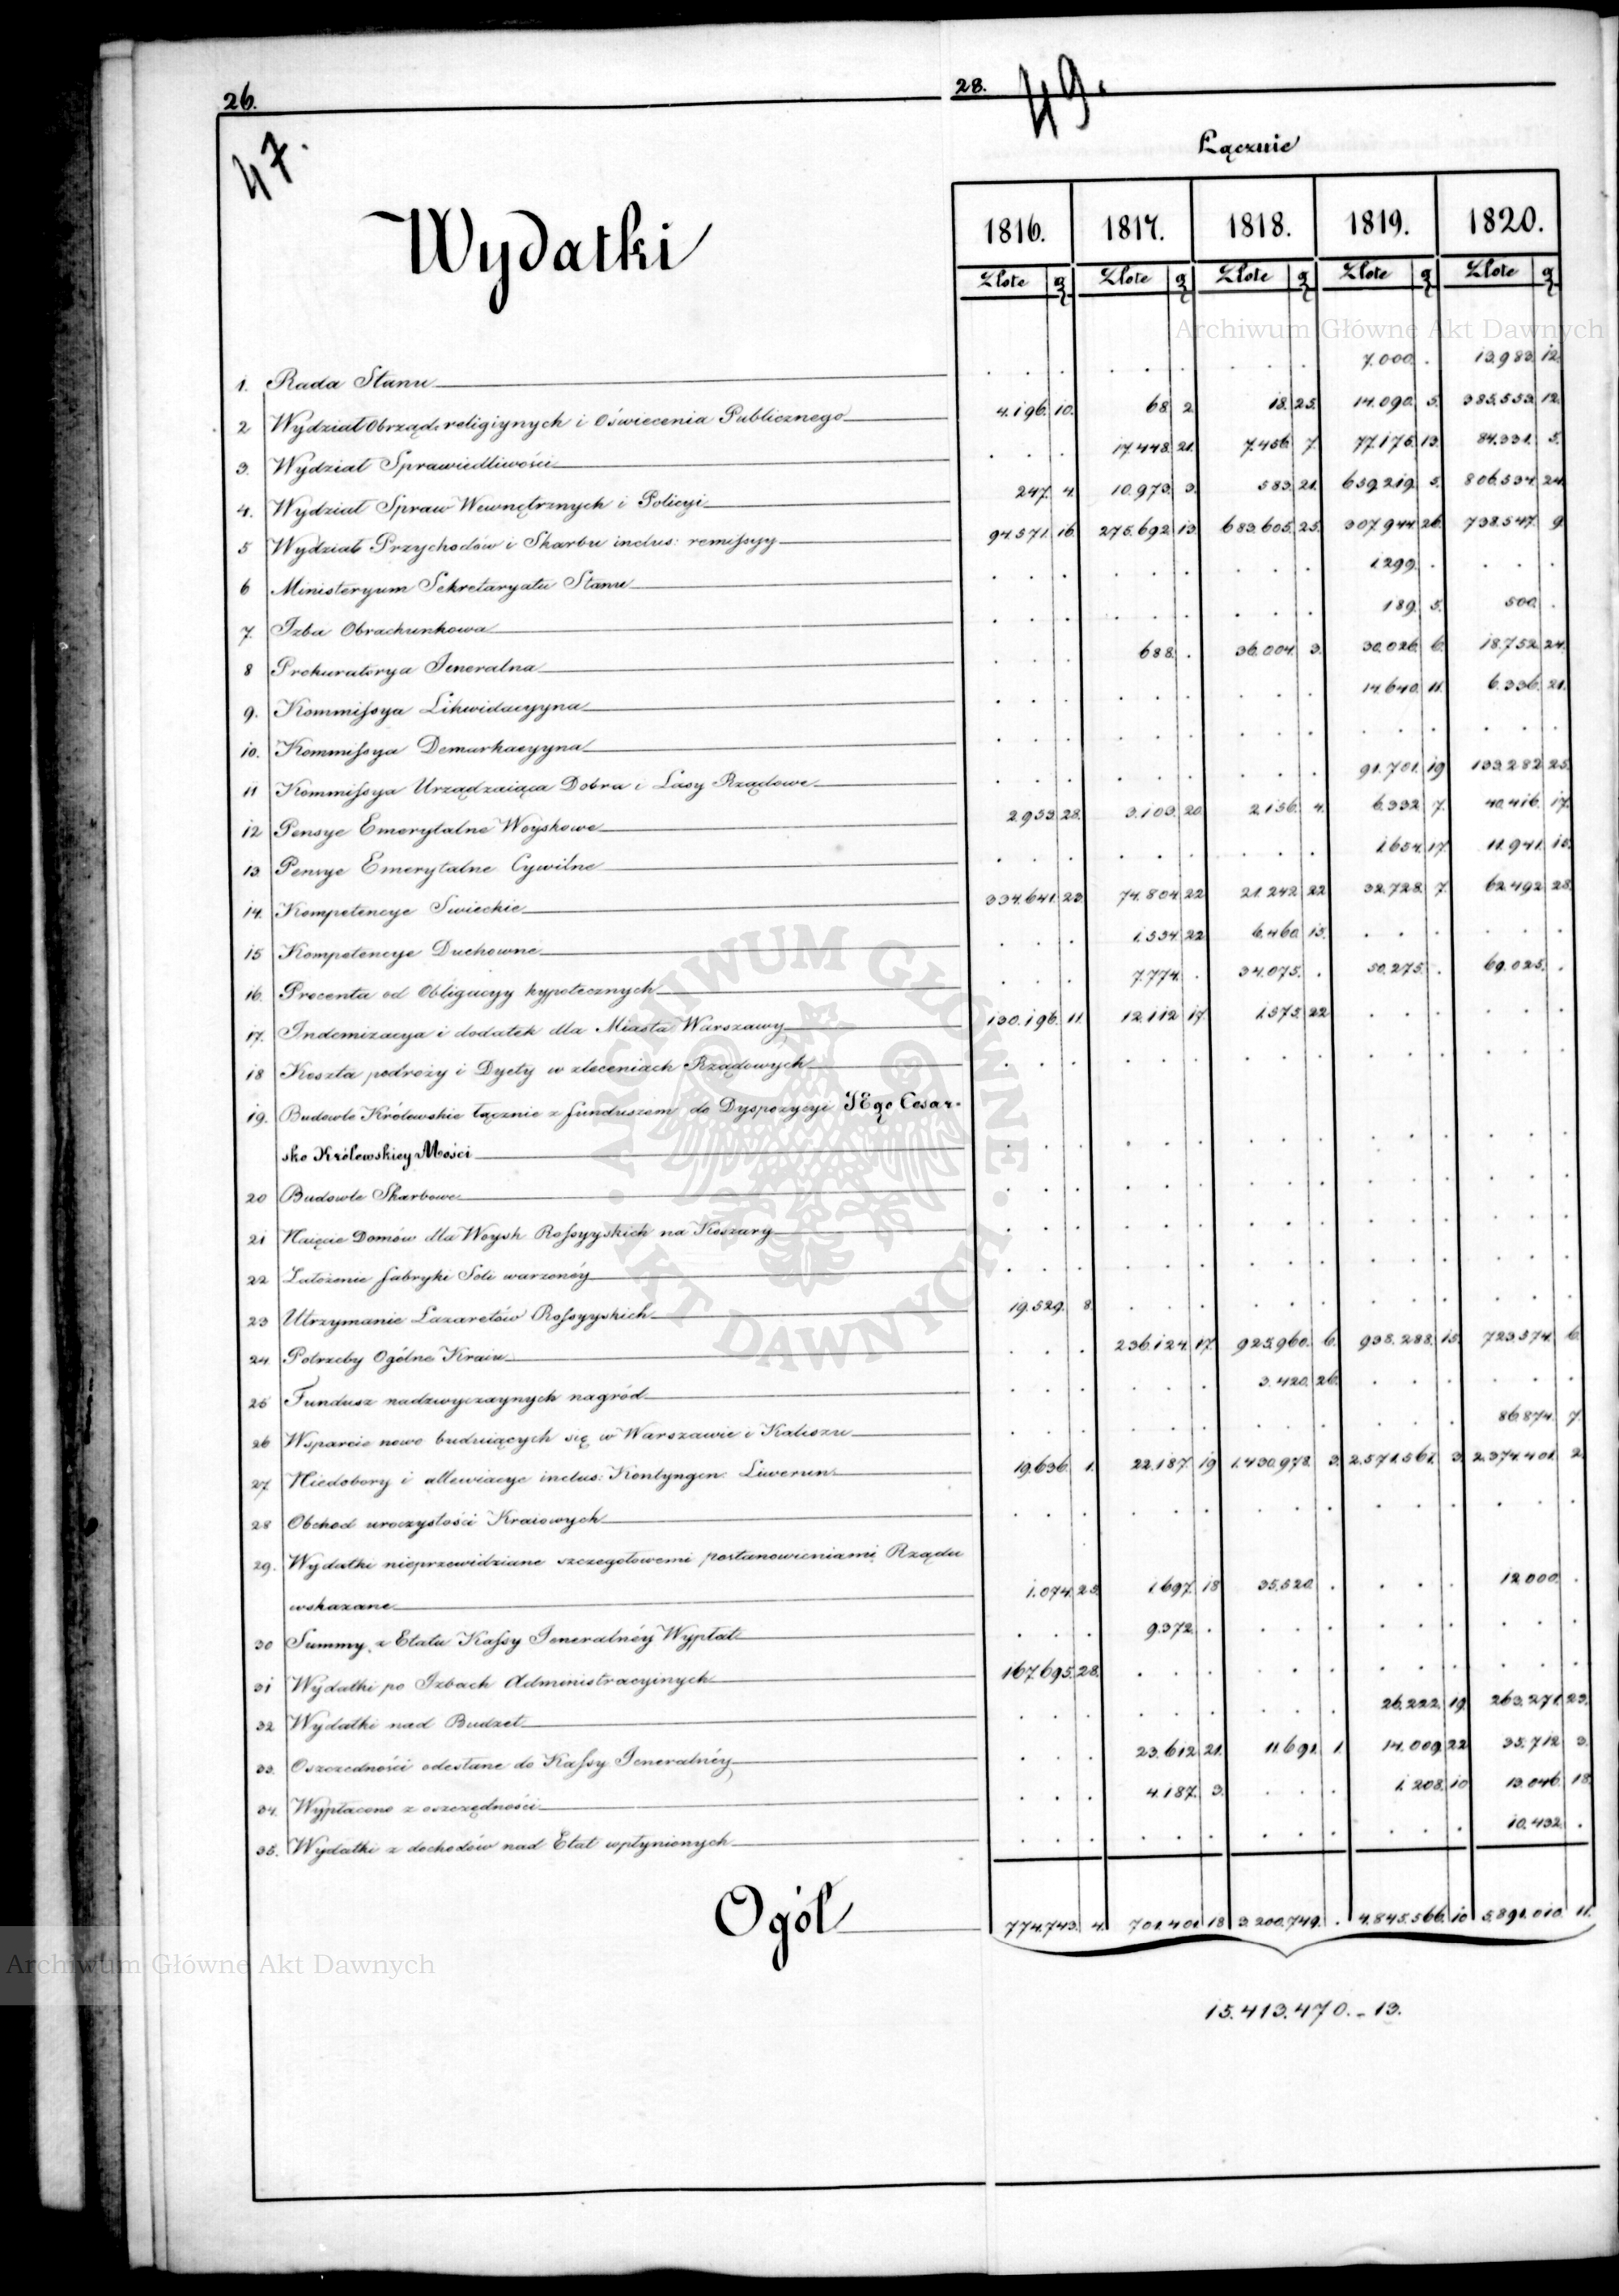 26.
28.
47.
49.
Łącznie
Wydatki
1816. 1817. 1818. 1819. 1820.
Złote g Złote g Złote g Złote g Złote g
1. Rada Stanu . . . . . . . . . 7.000. . 13.983. 12.
2 Wydział Obrząd. religiynych i Oświecenia Publicznego 4.196. 10. 68. 2. 18. 25. 14.090. 5. 385.553. 12.
3. Wydział Sprawiedliwości . . . 17.448. 21. 7.456. 7. 77.176. 13. 84.331. 5.
4. Wydział Spraw Wewnętrznych i Policyi 247. 4. 10.973. 3. 583. 21. 659.219. 5. 806.534. 24.
5 Wydział Przychodów i Skarbu inclus: remissyy 94.571. 16. 275.692. 13. 683.605. 25. 307.944. 26. 738.547. 9.
6 Ministeryum Sekretaryatu Stanu . . . . . . . . . 1.299. . . . .
7. Izba Obrachunkowa . . . . . . . . . 189. 5. 500. .
8 Prokuratorya Jeneralna . . . 688. . 36.004. 3. 30.026. 6. 18.752. 24.
9. Kommissya Likwidacyyna . . . . . . . . . 14.640. 11. 6.336. 21.
10. Kommissya Demarkacyyna . . . . . . . . . . . . . . .
11 Kommissya Urządzaiąca Dobra i Lasy Rządowe . . . . . . . . . 91.701. 19 133.282. 25.
12 Pensye Emerytalne Woyskowe 2.953. 28. 3.103. 20. 2.156. 4. 6.332. 7. 40.416. 17.
13. Pensye Emerytalne Cywilne . . . . . . . . . 1.654. 17. 11.941. 15.
14. Kompetencye Swieckie 334.641. 23. 74.804. 22 21.242. 22 32.728. 7. 62.492. 28.
15 Kompetencye Duchowne . . . 1.534. 22 6.460. 15. . . . . . .
16. Procenta od Obligacyy hypotecznych . . . 7.774. . 34.075. . 50.275. . 69.025. .
17. Indemizacya i dodatek dla Miasta Warszawy 130.196. 11 12.112. 17. 1.575. 22 . . . . . .
18 Koszta podroży i Dyety w zleceniach Rządowych . . . . . . . . . . . . . . .
19. Budowle Królewskie łącznie z funduszem do Dyspozycyi JEgo Cesar-
sko Królewskiey Mości . . . . . . . . . . . . . . .
20 Budowle Skarbowe . . . . . . . . . . . . . . .
21 Naięcie Domów dla Woysk Rossyyskich na Koszary . . . . . . . . . . . . . . .
22 Założenie fabryki Soli warzonéy . . . . . . . . . . . . . . .
23 Utrzymanie Lazaretów Rossyyskich 19.529. 8. . . . . . . . . . . . .
24. Potrzeby Ogólne Kraiu . . . 236.124. 17. 925.960. 6. 938.288. 15. 723.574. 6.
25 Fundusz nadzwyczaynych nagród . . . . . . 3.420. 26. . . . . . .
26 Wsparcie nowo buduiących się w Warszawie i Kaliszu . . . . . . . . . . . . 86.874. 7.
27 Niedobory i allewiacye inclus: Kontyngen. Liwerun: 19.636. 1. 22.187. 19 1.430.978. 3. 2.571.561. 3. 2.374.401. 2.
28 Obchod uroczystości Kraiowych . . . . . . . . . . . . . . .
29. Wydatki nieprzewidziane szczegołowemi postanowieniami Rządu
wskazane 1.074. 25. 1.697. 18 35.520. . . . . 12.000. .
30 Summy z Etatu Kassy Jeneralnéy Wypłat . . . 9.372. . . . . . . . . . .
31 Wydatki po Izbach Administracyinych 167.695. 28. . . . . . . . . . . . .
32 Wydatki nad Budżet . . . . . . . . . 26.222. 19. 263.271. 23.
33. Oszczedności odesłane do Kassy Jeneralnéy . . . 23.612. 21. 11.691. 1. 14.009. 22 35.712. 3.
34. Wypłacono z oszczędności . . . 4.187. 3. . . . 1.208. 10 13.046. 18.
35. Wydatki z dochodów nad Etat wpłynionych . . . . . . . . . . . . 10.432. .
Ogól 774.743. 4. 701.401. 18 3.200.749. . 4.845.566. 10 5.891.010. 11.
15.413.470. - 13.
Archiwum Główne Akt Dawnych
ARCHIWUM GŁÓWNE · AKT DAWNYCH ·
Archiwum Główne Akt Dawnych